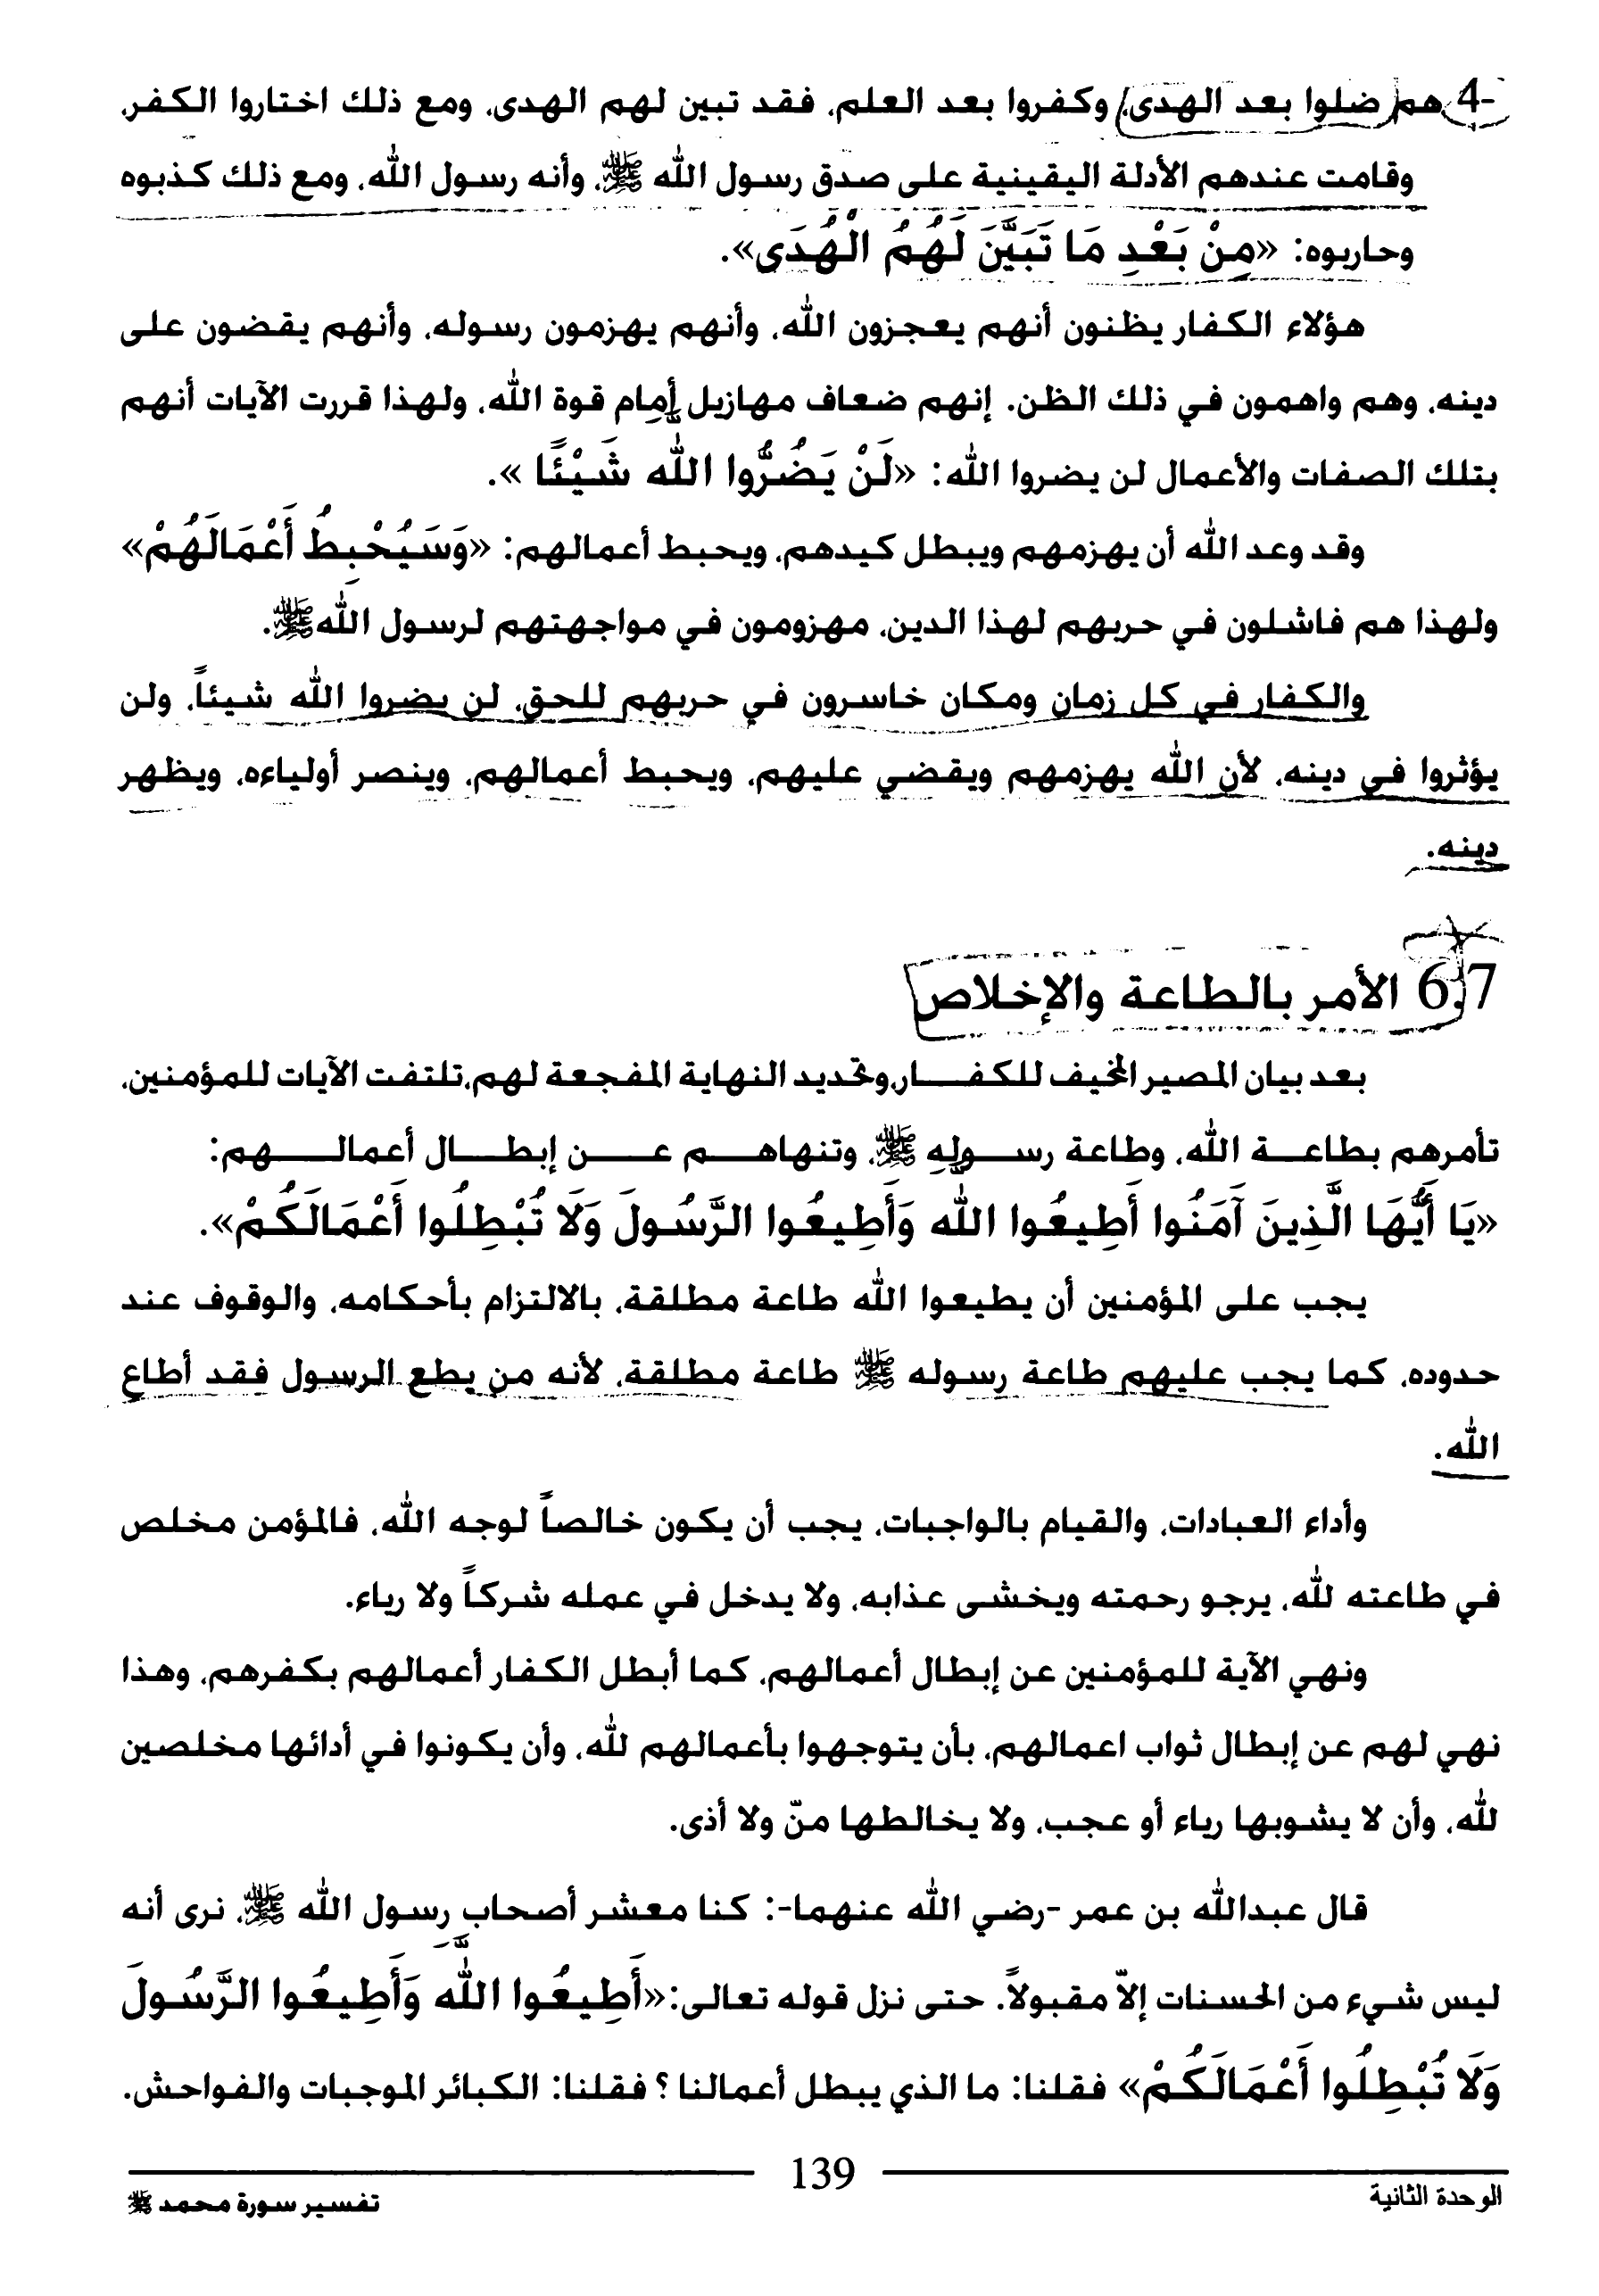 4- هم ضلوا بعد الهدى، وكفروا بعد العلم، فقد تبين لهم الهدى، ومع ذلك اختاروا الكفر،
وقامت عندهم الأدلة اليقينية على صدق رسول الله ﷺ، وأنه رسول الله، ومع ذلك كذبوه
وحاربوه: «مِنْ بَعْدِ مَا تَبَيَّنَ لَهُمُ الْهُدَى».
هؤلاء الكفار يظنون أنهم يعجزون الله، وأنهم يهزمون رسوله، وأنهم يقضون على
دينه، وهم واهمون في ذلك الظن. إنهم ضعاف مهازيل أمام قوة الله، ولهذا قررت الآيات أنهم
بتلك الصفات والأعمال لن يضروا الله: «لَنْ يَضُرُّوا اللَّه شَيْئًا ».
وقد وعد الله أن يهزمهم ويبطل كيدهم، ويحبط أعمالهم: «وَسَيُحْبِطُ أَعْمَالَهُمْ»
ولهذا هم فاشلون في حربهم لهذا الدين، مهزومون في مواجهتهم لرسول اللهﷺ.
والكفار في كل زمان ومكان خاسرون في حربهم للحق، لن يضروا الله شيئاً، ولن
يؤثروا في دينه، لأن الله يهزمهم ويقضي عليهم، ويحبط أعمالهم، وينصر أولياءه، ويظهر
دينه.
6.7 الأمر بالطاعة والإخلاص
بعد بيان المصير المخيف للكفـــار،وتحديد النهاية المفجعة لهم،تلتفت الآيات للمؤمنين،
تأمرهم بطاعـــة الله، وطاعة رســـوله ﷺ، وتنهاهـــم عـــن إبطـــال أعمالـــهم:
«يَا أَيُّهَا الَّذِينَ آمَنُوا أَطِيعُوا اللَّه وَأَطِيعُوا الرَّسُولَ وَلَا تُبْطِلُوا أَعْمَالَكُمْ».
يجب على المؤمنين أن يطيعوا الله طاعة مطلقة، بالالتزام بأحكامه، والوقوف عند
حدوده، كما يجب عليهم طاعة رسوله ﷺ طاعة مطلقة، لأنه من يطع الرسول فقد أطاع
الله.
وأداء العبادات، والقيام بالواجبات، يجب أن يكون خالصاً لوجه الله، فالمؤمن مخلص
في طاعته لله، يرجو رحمته ويخشى عذابه، ولا يدخل في عمله شركاً ولا رياء.
ونهي الآية للمؤمنين عن إبطال أعمالهم، كما أبطل الكفار أعمالهم بكفرهم، وهذا
نهي لهم عن إبطال ثواب اعمالهم، بأن يتوجهوا بأعمالهم لله، وأن يكونوا في أدائها مخلصين
لله، وأن لا يشوبها رياء أو عجب، ولا يخالطها منّ ولا أذى.
قال عبدالله بن عمر -رضي الله عنهما-: كنا معشر أصحاب رسول الله ﷺ، نرى أنه
ليس شيء من الحسنات إلاّ مقبولاً. حتى نزل قوله تعالى:«أَطِيعُوا اللَّهَ وَأَطِيعُوا الرَّسُولَ
وَلَا تُبْطِلُوا أَعْمَالَكُمْ» فقلنا: ما الذي يبطل أعمالنا ؟ فقلنا: الكبائر الموجبات والفواحش.
139
الوحدة الثانية
تفسير سورة محمد ﷺ